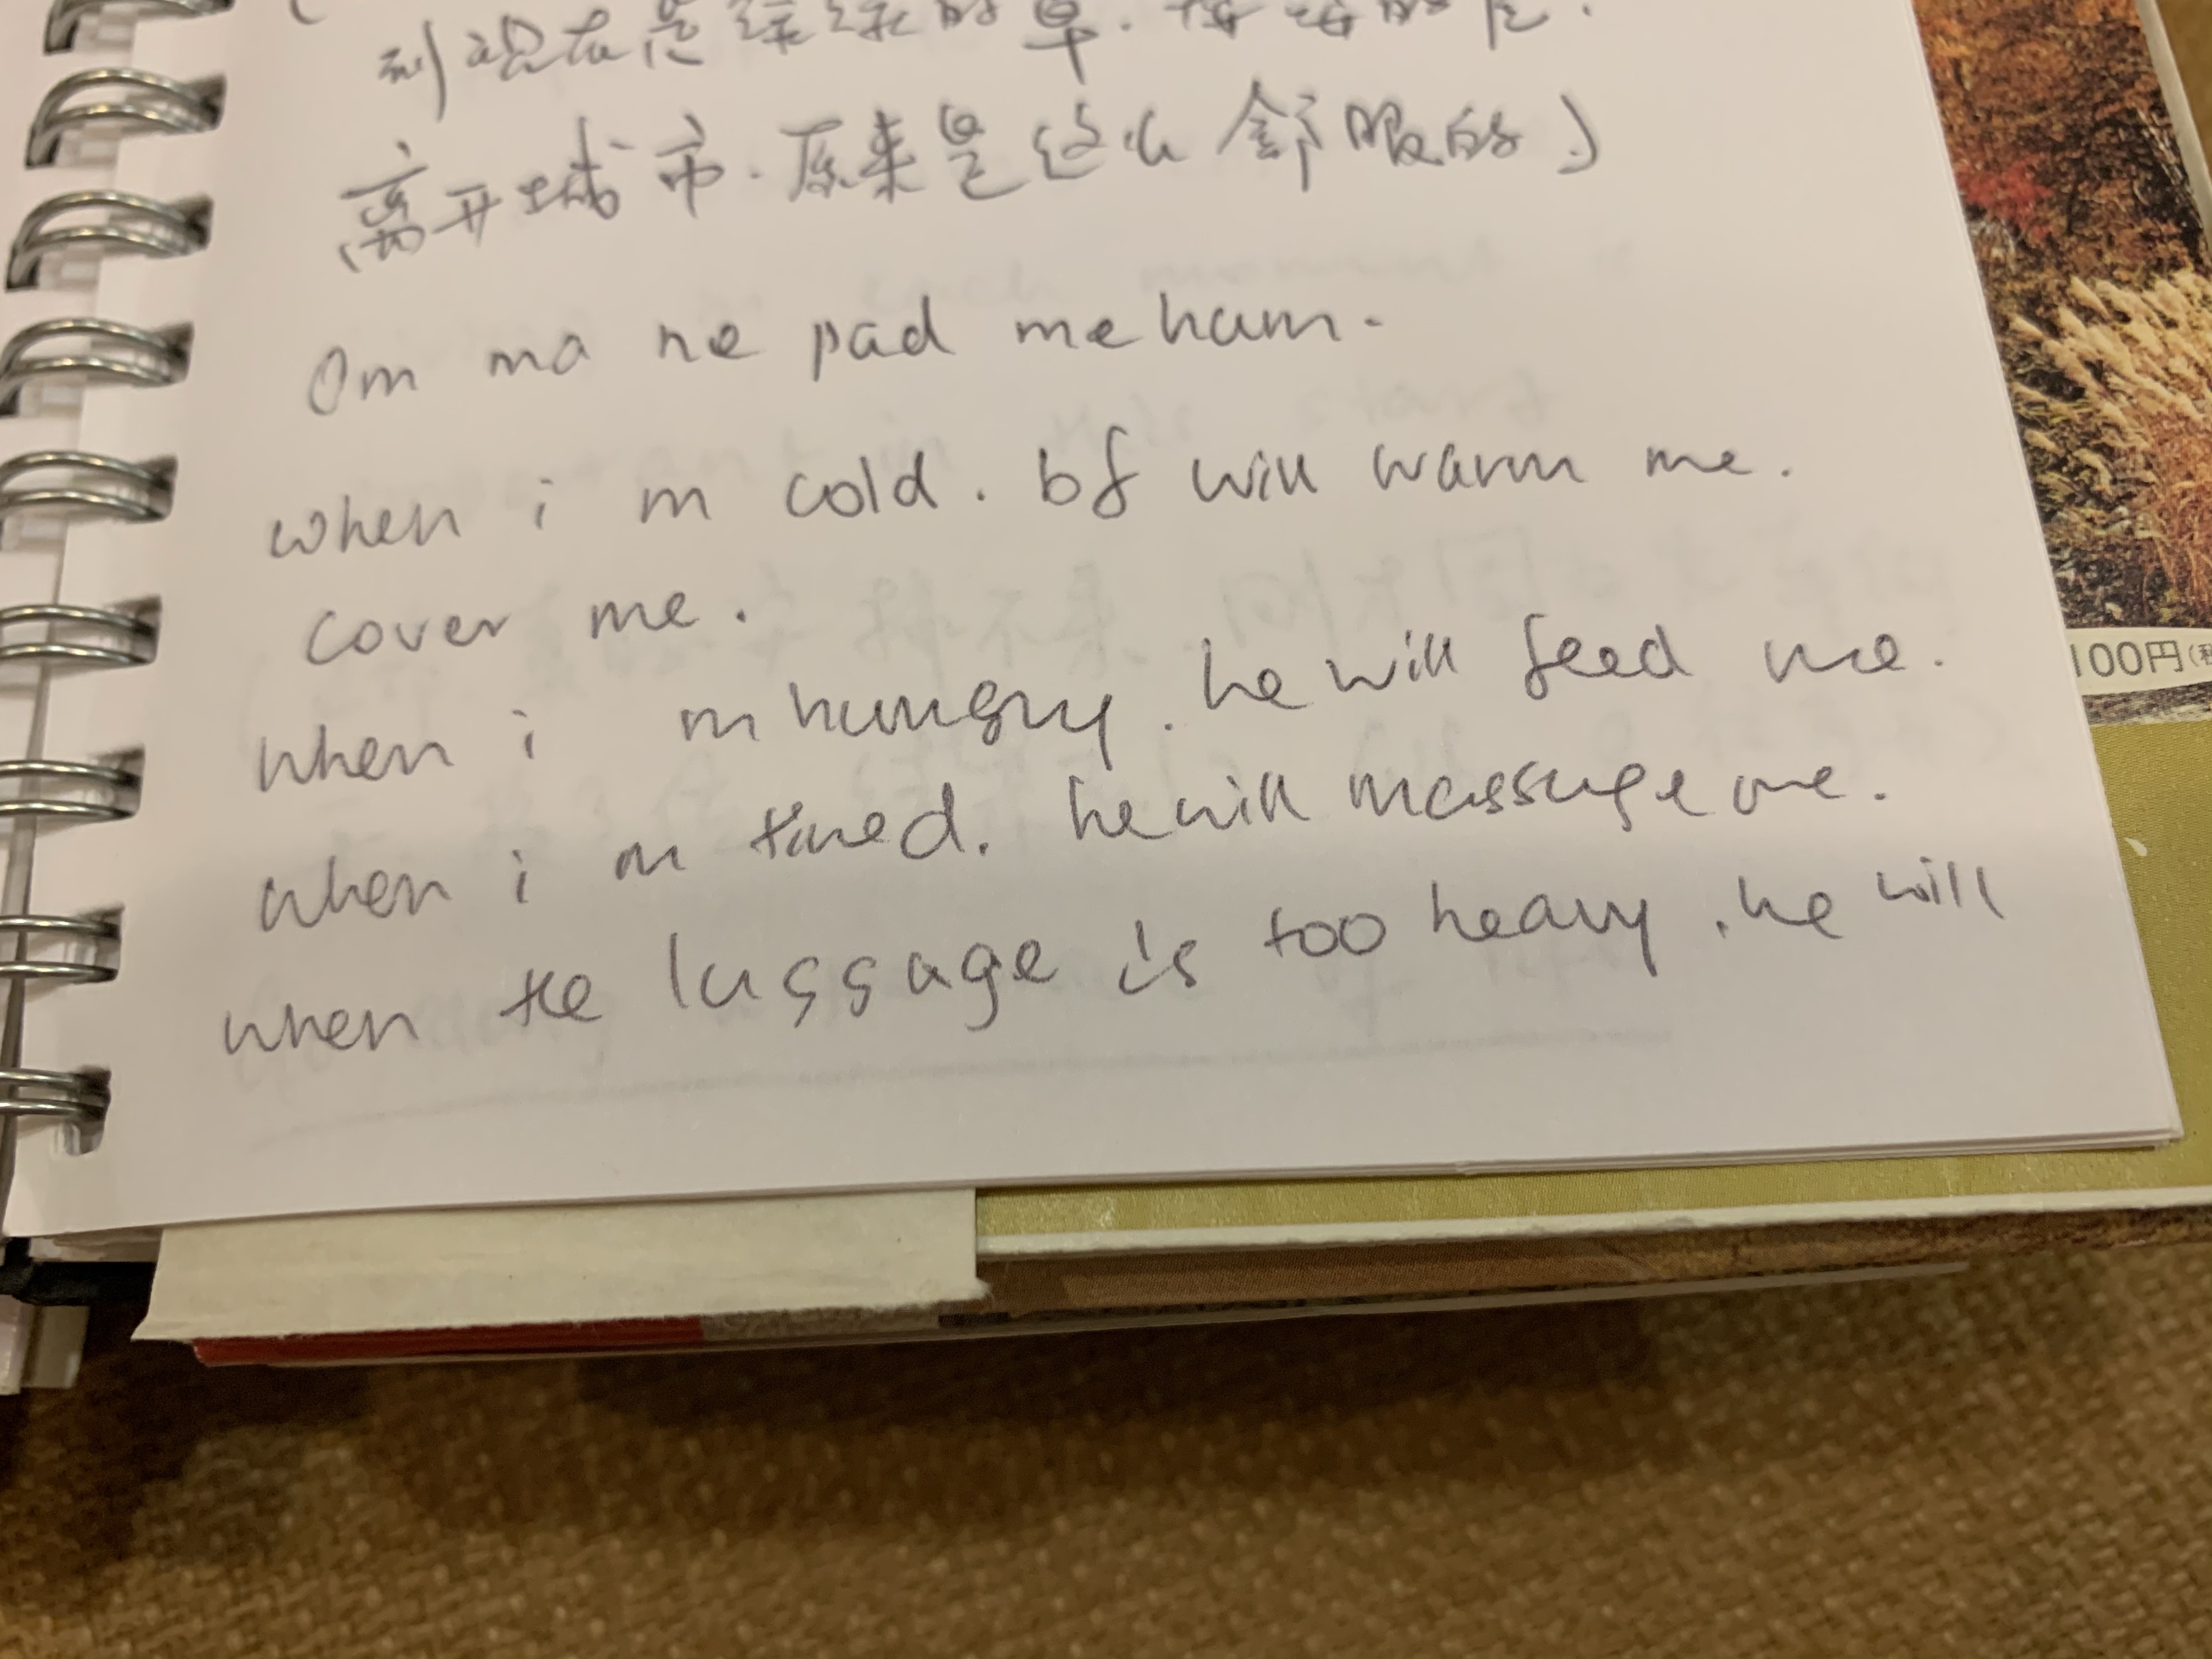 到现在是绿绿的草.
离开城市.原来是这么舒服的」
Om ma ne pad me ham.
when i m cold. bf will warm me.
cover me.
when i m hungry. he will feed me.
when i m tired. he will massage me.
when the luggage is too heavy. he will
100円